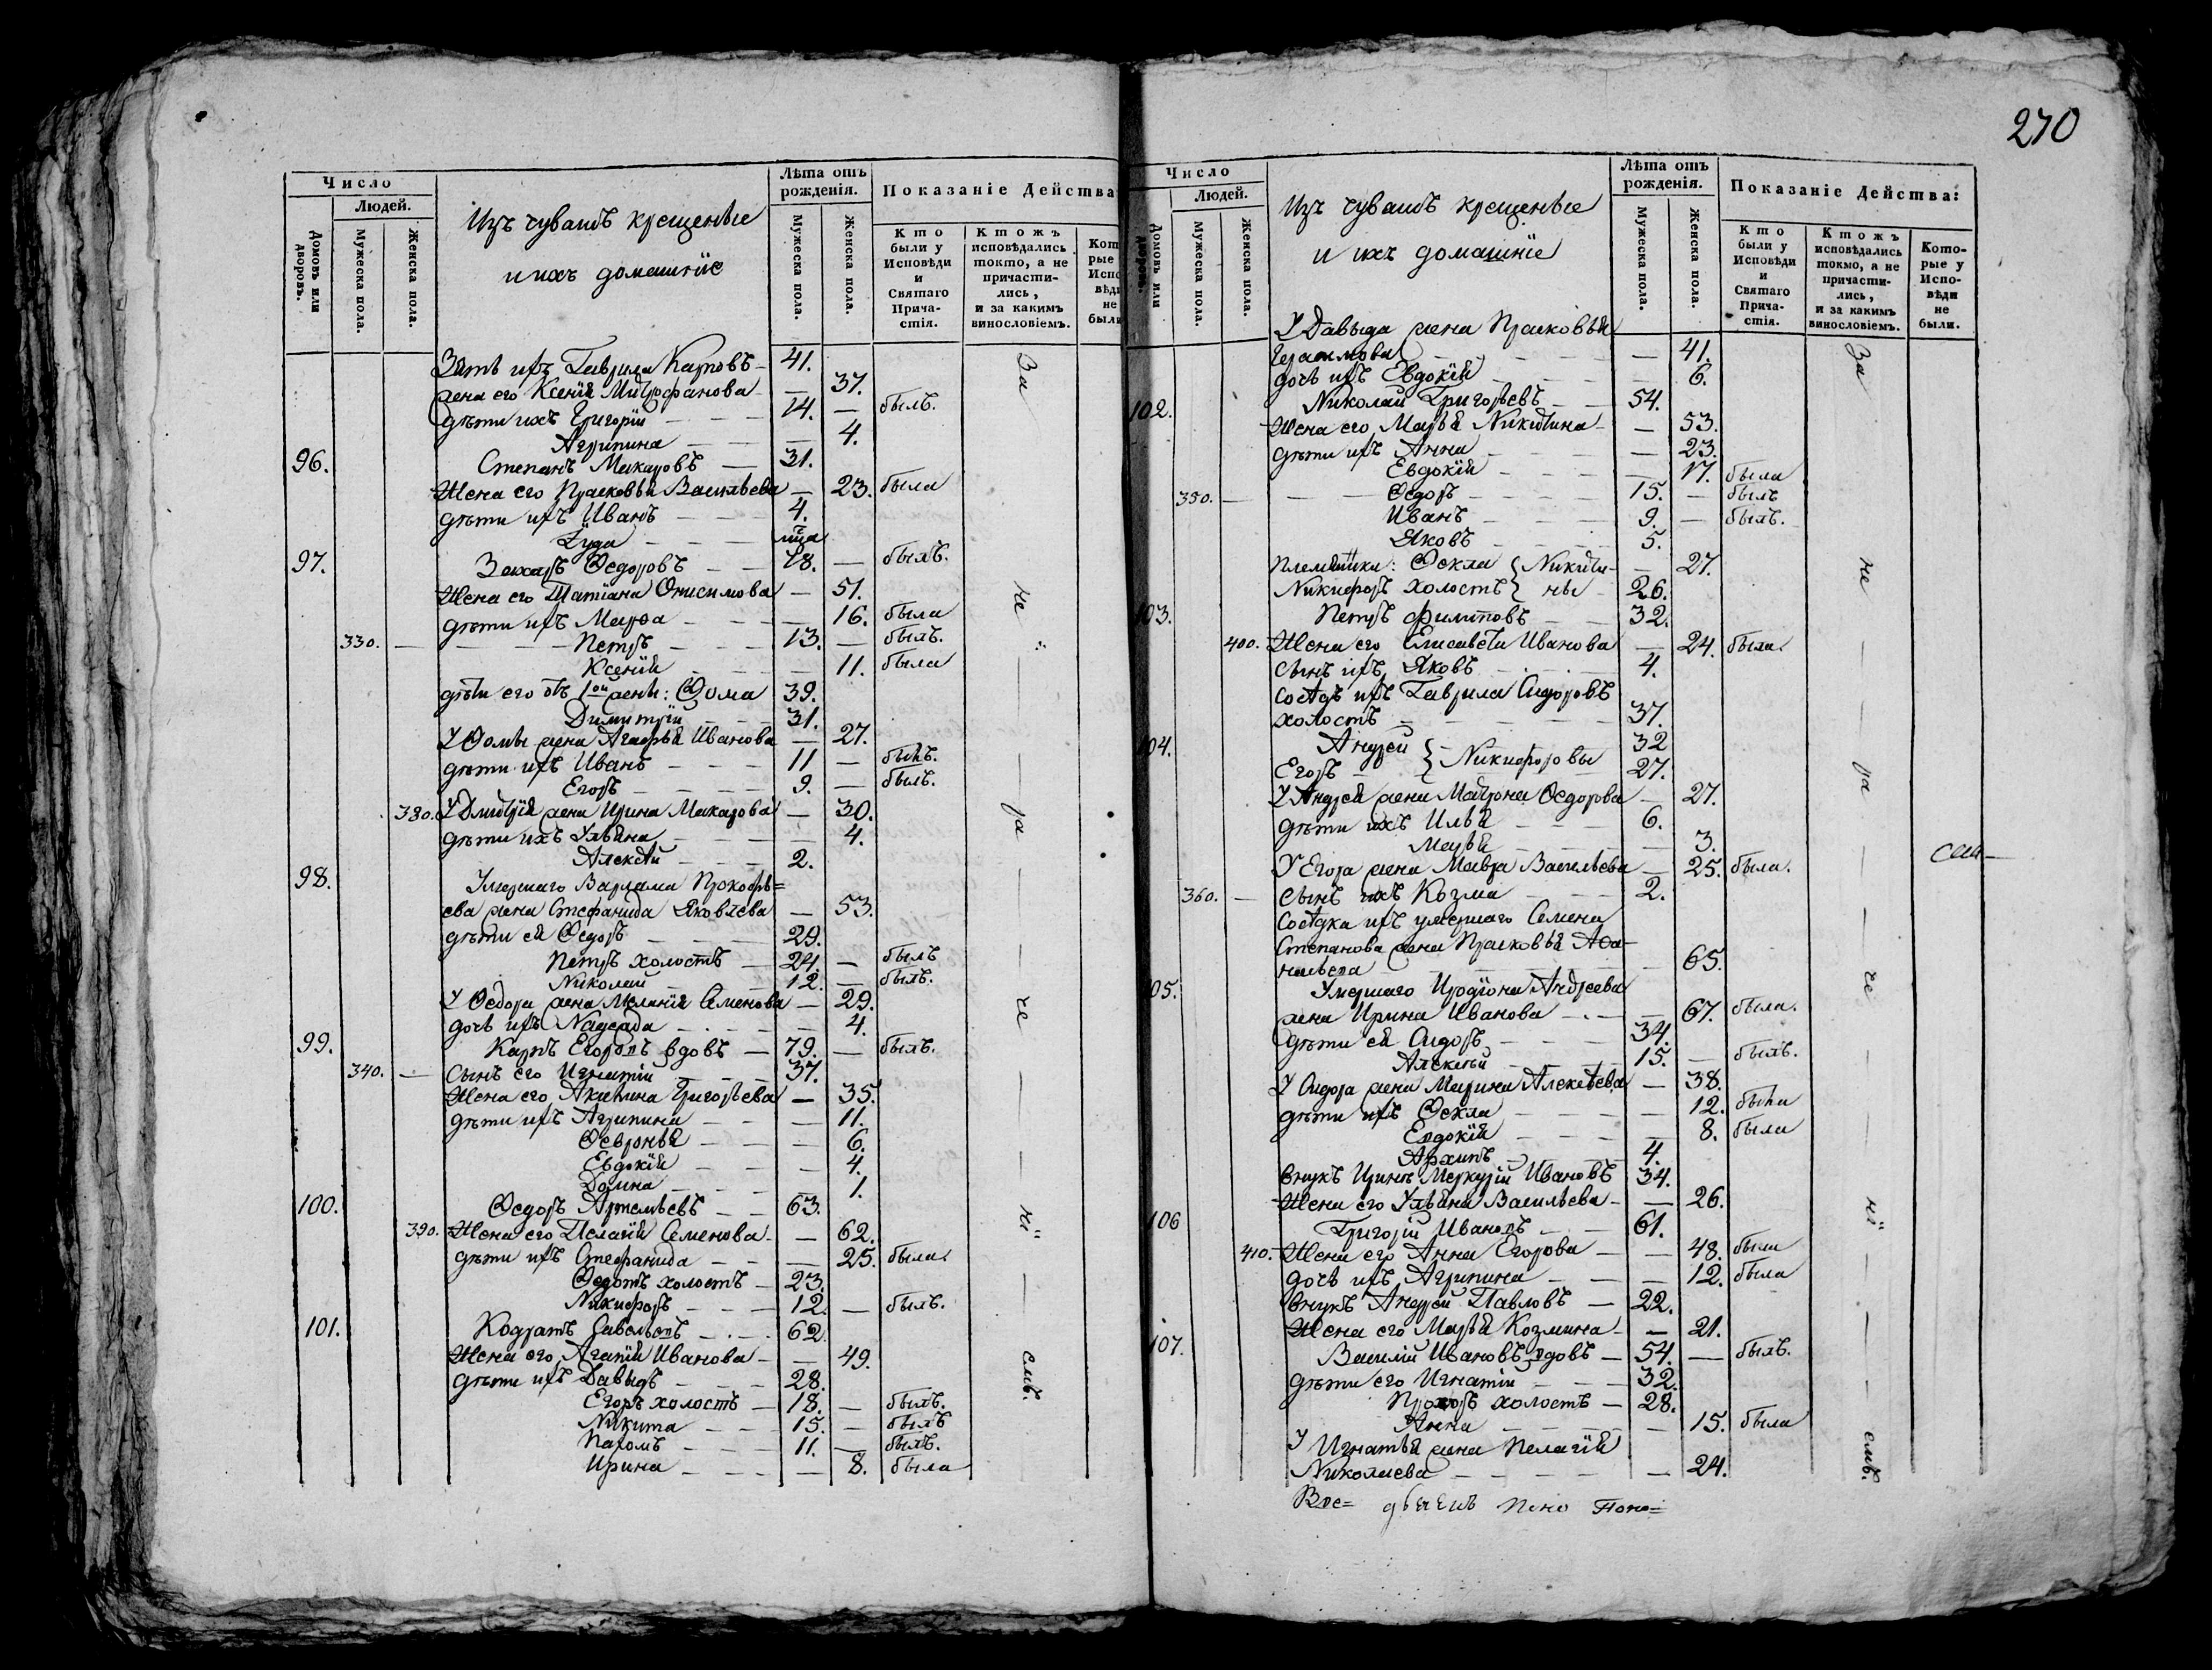 270
Число
Людей.
Домовъ или дворовъ.
Мужеска пола.
Женска пола.
Изъ чувашъ крещеные
и ихъ домашніе
Лѣта отъ рожденія.
Мужеска пола.
Женска пола.
Показаніе Действа
Кто были у Исповѣди и Святаго Причастія.
Ктожъ исповѣдались токмо, а не причастились, и за какимъ винословіемъ.
Зять ихъ Гаврила Карповъ 41.
жена его Ксенія Митрофанова — 37.
дѣти ихъ Григорій 14. — былъ.
Агрипина — 4.
96. Степанъ Макаровъ — 31.
Жена его Прасковья Васильева — 23. была
дѣти ихъ Иванъ 4.
97. Захаръ Ѳедоровъ — 78. — былъ.
Жена его Татіана Онисимова — 51.
дѣти ихъ Марѳа — 16. была
330. — Петръ 13. — былъ.
Ксенія 11. была
дѣти его отъ 1ой жены: Ѳома 39.
Димитрій 31.
У Ѳомы жена Агафья Иванова — 27.
дѣти ихъ Иванъ 11 — былъ.
Егоръ 9. — былъ.
380. У Дмитрія жена Ирина Макарова — 30.
дѣти ихъ Ульяна 4.
Алексѣй 2.
98. Умершаго Варлама Прокофь=
ева жена Стефанида Яковлева — 53.
дѣти ея Ѳедоръ 29.
Петръ холостъ — 24. — былъ
Николай 12. — былъ.
У Ѳедора жена Меланія Семенова — 29.
дочь ихъ Надежда 4.
99. Карпъ Егоровъ вдовъ — 79. — былъ.
340. — Сынъ его Игнатій 37.
Жена его Акилина Григорьева — 35.
дѣти ихъ Агрипина — 11.
Ѳевронья 6.
Евдокія — 4.
Домна 1.
100. Ѳедоръ Артемьевъ — 63.
390. Жена его Пелагія Семенова — 62.
дѣти ихъ Стефанида — 25. была.
Ѳедотъ холостъ — 23.
Никифоръ 12. — былъ.
101. Кодратъ Савельевъ 62.
Жена его Агапія Иванова — 49.
дѣти ихъ Давыдъ 28.
Егоръ холостъ — 18. — былъ.
Никита 15. — былъ
Пахомъ 11. — былъ.
Ирина — 8. была
За не ра че ні емъ.
Число
Людей.
Домовъ или дворовъ.
Мужеска пола.
Женска пола.
Изъ чувашъ крещеные
и ихъ домашніе
Лѣта отъ рожденія.
Мужеска пола.
Женска пола.
Показаніе Действа:
Кто были у Исповѣди и Святаго Причастія.
Ктожъ исповѣдались токмо, а не причастились, и за какимъ винословіемъ.
Которые у Исповѣди не были.
У Давыда жена Прасковья
Герасимова — 41.
дочь ихъ Евдокія 6.
102. Николай Григорьевъ — 54.
Жена его Марья Никитина — 53.
дѣти ихъ Анна — 23.
Евдокія — 17. была
350. — Ѳедоръ 15. — былъ
Иванъ 9. — былъ.
Яковъ 5.
Племянники: Ѳекла } Никити- — 27.
Никифоръ холостъ } ны 26.
103. Петръ Филиповъ 32.
400. Жена его Елисавета Иванова — 24. была.
Сынъ ихъ Яковъ 4.
Сосѣдъ ихъ Гаврила Сидоровъ
холостъ 37.
104. Андрей } Никифоровы 32
Егоръ 27.
У Андрея жена Матрона Ѳедорова — 27.
дѣти ихъ Илья 6.
Марья — 3.
У Егора жена Мавра Васильева — 25. была.
360. — Сынъ ихъ Козма 2.
Сосѣдка ихъ умершаго Семена
Степанова жена Прасковья Аѳа-
насьева — 65.
105. Умершаго Иродіона Андреева
жена Ирина Иванова — 67. была.
дѣти ея Сидоръ 34.
Алексѣй 15. — былъ.
У Сидора жена Марина Алексѣева — 38.
дѣти ихъ Ѳекла — 12. была
Евдокія — 8. была
Архипъ 4.
Внукъ Ирины Меркурій Ивановъ 34.
Жена его Ульяна Васильева — 26.
106 Григорій Ивановъ 61.
410. Жена его Анна Егорова — 48. была
дочь ихъ Агрипина — 12. была
Внукъ Андрей Павловъ — 22.
Жена его Марья Козмина — 21.
107. Василій Ивановъ вдовъ — 54. — былъ.
дѣти его Игнатій 32.
Прохоръ холостъ — 28.
Анна — 15. была
У Игнатья жена Пелагія
Николаева — 24.
За не ра че ні емъ.